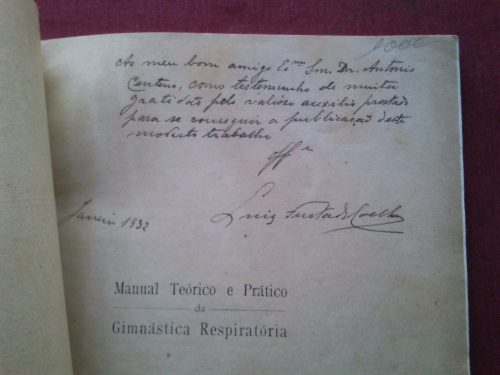 1000
Ao meu bom amigo Exmo Snr. Dr. Antonio
Centeno, como testemunho de muita
gratidão pelo valioso auxilio prestado
para se conseguir a publicação deste
modesto trabalho
offe
Janeiro 1932
Luiz Furtado Coelho
Manual Teórico e Prático
da
Gimnástica Respiratória